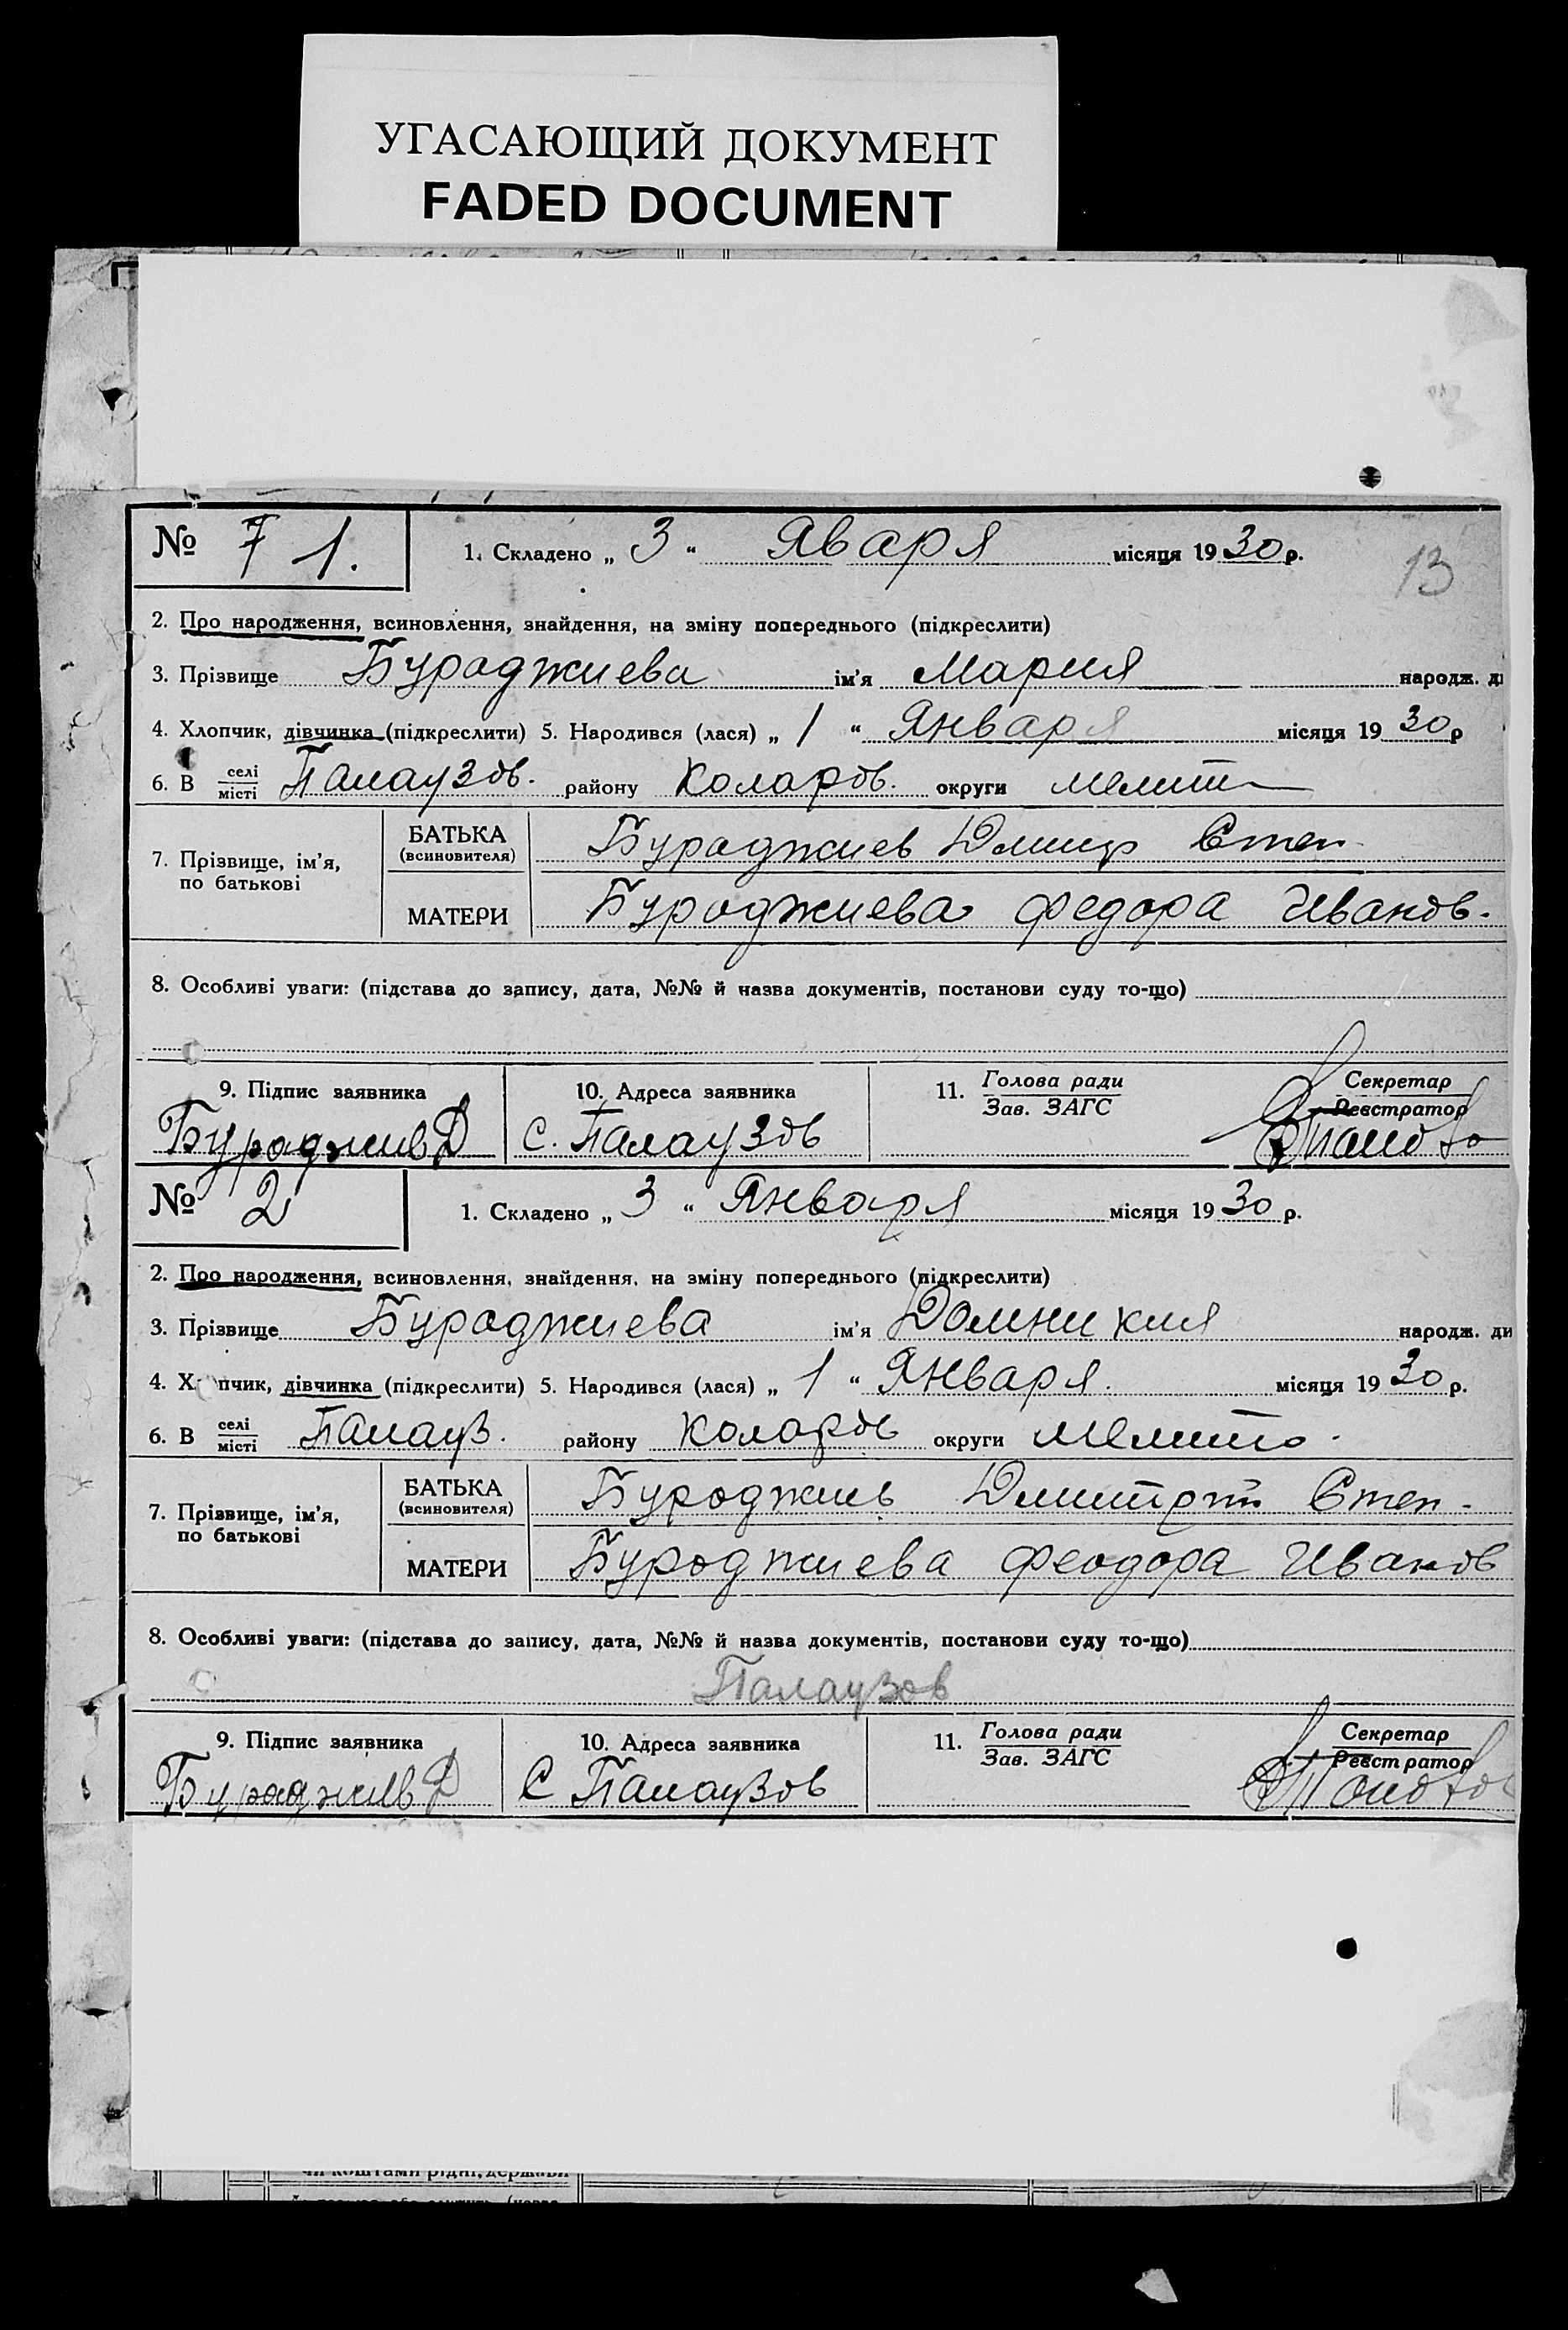 УГАСАЮЩИЙ ДОКУМЕНТ
FADED DOCUMENT
№ 7 1. 1. Складено „ 3 “ Яваря місяця 1930 р.
13
2. Про народження, всиновлення, знайдення, на зміну попереднього (підкреслити)
3. Прізвище Бураджиева ім'я Мария народж. ди
4. Хлопчик, дівчинка (підкреслити) 5. Народився (лася) „ 1 “ Января місяця 1930 р
6. В селі місті Палаузов. району Коларов. округи Мелит
7. Прізвище, ім'я, по батькові
БАТЬКА (всиновителя) Бураджиев Дмитр Степ.
МАТЕРИ Бураджиева Федора Иванов.
8. Особливі уваги: (підстава до запису, дата, №№ й назва документів, постанови суду то-що)
9. Підпис заявника 10. Адреса заявника 11. Голова ради Зав. ЗАГС Секретар Реєстратор
Бураджив Д с. Палаузов
№ 2 1. Складено „ 3 “ Января місяця 1930 р.
2. Про народження, всиновлення, знайдення, на зміну попереднього (підкреслити)
3. Прізвище Бураджиева ім'я Домникия народж. ди
4. Х пчик, дівчинка (підкреслити) 5. Народився (лася) „ 1 “ Января. місяця 1930 р.
6. В селі місті Палауз. району Коларов округи Мелито.
7. Прізвище, ім'я, по батькові
БАТЬКА (всиновителя) Бураджив Дмитрий Степ.
МАТЕРИ Бураджиева Феодора Иванов
8. Особливі уваги: (підстава до запису, дата, №№ й назва документів, постанови суду то-що)
Палаузов
9. Підпис заявника 10. Адреса заявника 11. Голова ради Зав. ЗАГС Секретар Реєстратор
Бураджив Д С Палаузов